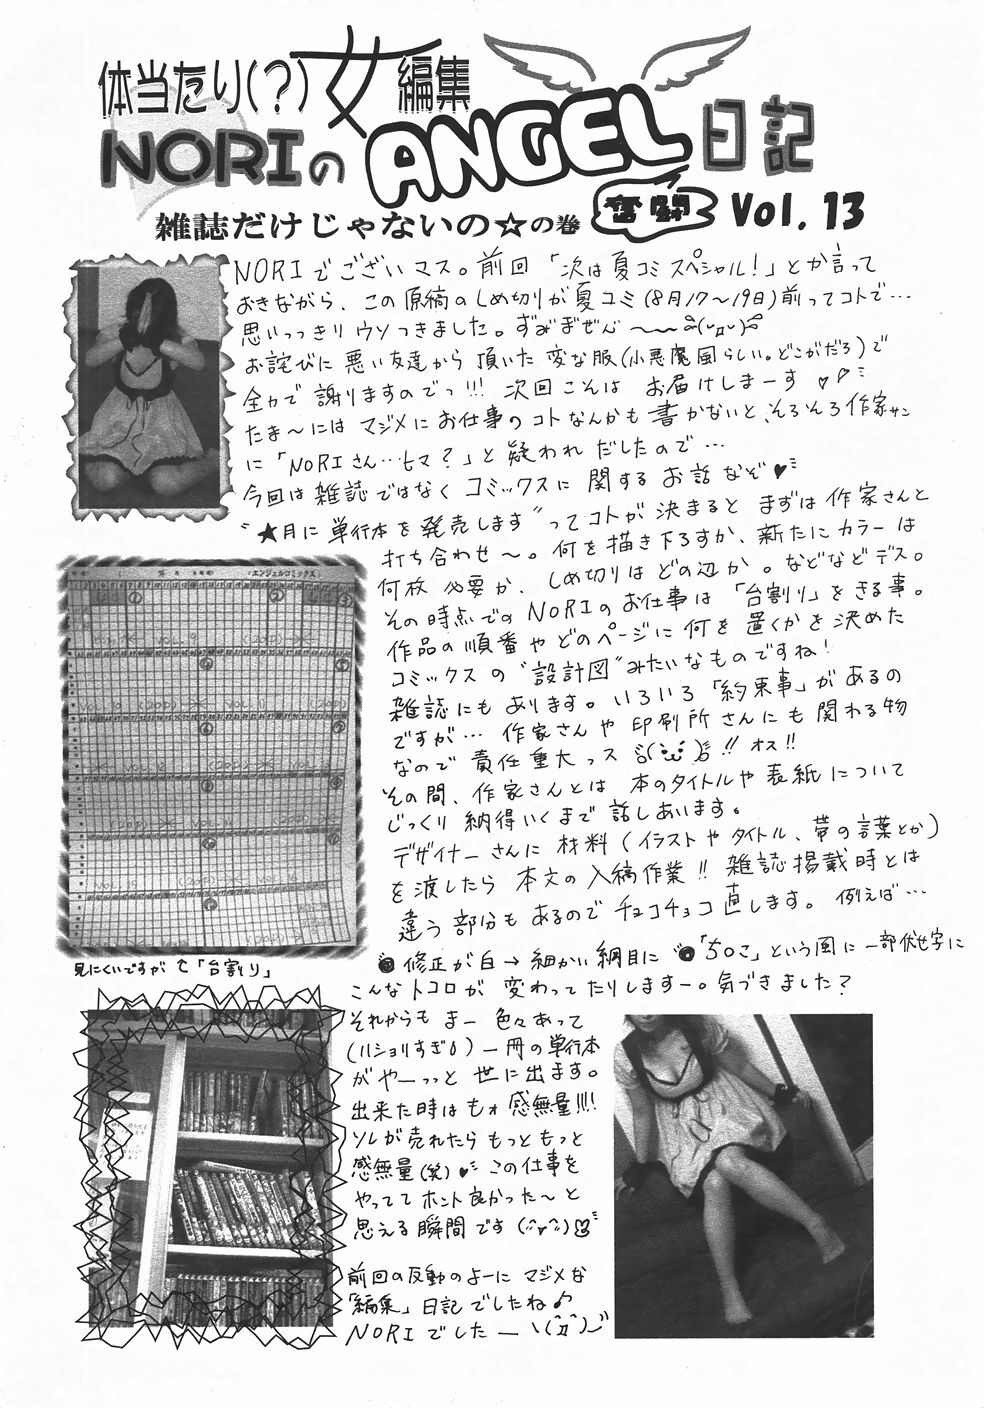 体当たり(?)女編集
NORIのANGEL日記
奮闘
Vol. 13
雑誌だけじゃないの☆の巻
NORIでございマス。前回「次は夏コミスペシャル!」とか言って
おきながら、この原稿のしめ切りが夏コミ(8月17〜19日)前ってコトで…
思いっっきりウソつきました。すみません〜〜
お詫びに悪い友達から頂いた変な服(小悪魔風らしい。どこがだろ)で
全力で謝りますのでっ!!! 次回こそはお届けしまーす♡
たま〜にはマジメにお仕事のコトなんかも書かないと、そろそろ作家サン
に「NORIさん…ヒマ?」と疑われだしたので…
今回は雑誌ではなくコミックスに関するお話なぞ♥
"★月に単行本を発売します"ってコトが決まるとまずは作家さんと
打ち合わせ〜。何を描き下ろすか、新たにカラーは
何枚必要か、しめ切りはどの辺か。などなどデス。
その時点でのNORIのお仕事は「台割り」をきる事。
作品の順番やどのページに何を置くかを決めた
コミックスの"設計図"みたいなものですね!
雑誌にもあります。いろいろ「約束事」があるの
ですが… 作家さんや印刷所さんにも関わる物
なので責任重大っス!! オス!!
その間、作家さんとは本のタイトルや表紙について
じっくり納得いくまで話しあいます。
デザイナーさんに材料(イラストやタイトル、帯の言葉とか)
を渡したら本文の入稿作業!! 雑誌掲載時とは
違う部分もあるのでチョコチョコ直します。例えば…
修正が白→細かい網目に 「ち○こ」という風に一部伏せ字に
こんなトコロが変わってたりしますー。気づきました?
エンジェルコミックス
見にくいですが↑「台割り」
それからもまー色々あって
(ハショリすぎ)一冊の単行本
がやーっっと世に出ます。
出来た時はもォ感無量!!!!
ソレが売れたらもっともっと
感無量(笑)♥この仕事を
やっててホント良かった〜と
思える瞬間です
前回の反動のよーにマジメな
「編集」日記でしたね♪
NORIでした—